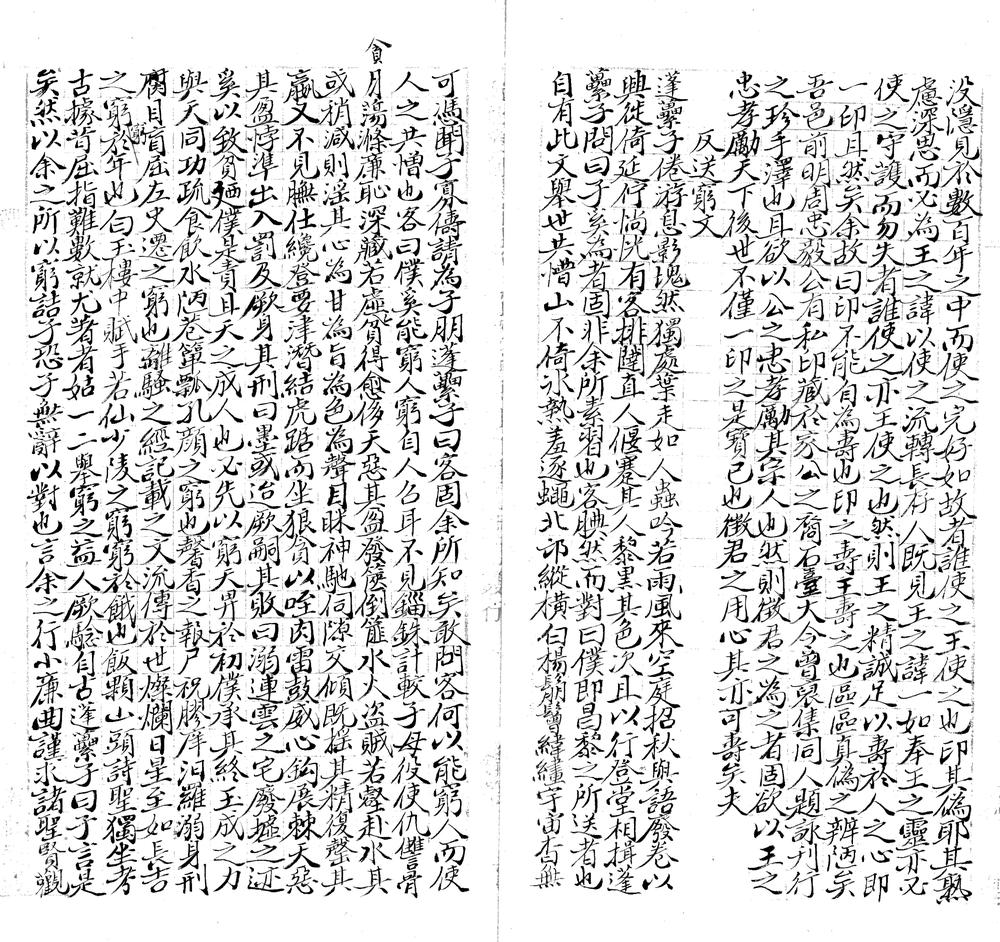 没隱見於數百年之中而使之完好如故者誰使之王使之也印其偽耶其熟
慮深思而必為王之諱以使之流轉長存人既見王之諱一如奉王之靈亦必
使之守護而勿失者誰使之亦王使之也然則王之精誠足以壽於人之心即
一印且然矣余故曰印不能自為壽也印之壽王壽之也區區真偽之辨泃矣
吾邑前明周忠毅公有私印藏於家公之裔石臺大令曾裒集同人題詠刊行
之珍手澤也且欲以公之忠孝勵其宗人也然則徵君之為之者固欲以王之
忠孝勵天下後世不僅一印之是寶已也徵君之用心其亦可壽矣夫
反送窮文
蓬藟子倦游息影塊然獨處葉走如人蟲吟若雨風來空庭招秋與語廢卷以
興徙倚延佇惝恍有客排闥直人偃蹇其人黎黑其色次且以行登堂相揖蓬
藟子問曰子奚為者固非余所素習也客腆然而對曰僕即昌黎之所送者也
自有此文舉世共憎山不倚冰熱羞逐蠅北邙縱橫白楊鬅鬙緯繣宇宙杳無
可憑聞子寡儔請為子朋蓬藟子曰客固余所知矣敢問客何以能窮人而使
人之共憎也客曰僕奚能窮人窮自人召耳不見錙銖計較子母役使仇讐骨
月蕩滌廉恥深藏若虛貧得愈侈天惡其盈發篋倒簏水火盜賊若聲赴水其
貪
或稍減則淫其心為甘為旨為色為聲目眯神馳伺隙交傾既搖其精復罄其
贏又不見膴仕纔登要津潛結虎踞而坐狼貪以咥肉雷鼓威心鈎展棘天惡
其盈悖準出入罰及厥身其刑曰墨或迨厥嗣其敗曰溺連雲之宅廢墟之迹
奚以致貧廼僕是責且天之成人也必先以窮天畀於初僕承其終玉成之力
與天同功疏食飲水陋巷簞瓢孔顏之窮也馨香之報尸祝膠庠汨羅溺身刑
腐目盲屈左史遷之窮也離騷之經記載之文流傳於世燦爛日星至如長吉
之窮窮於年也白玉樓中賦手若仙少陵之窮窮於餓也飯顆山頭詩聖獨坐考
古據昔屈指難數就尤者者姑一二舉窮之益人厥驗自古蓬藟子曰子言是
矣然以余之所以窮詰子恐子無辭以對也言余之行小廉曲謹求諸聖賢觀